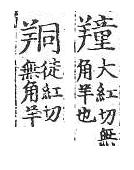 䍶
大紅切無
角羊也
徒紅切
無角羊